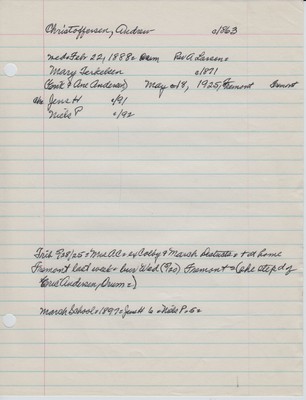 Christoffersen, Andrew a1863
m=d=Feb 22, 1888= Drum Rev A Larsen=
Mary Terkelsen a1871
(Cont & Ane Andersen) May =18, 1925, Fremont Fremont
ch= Jens H a/91
Niels P a/92
Trib 9/25/25= Mrs AC= ex Colby & Marsh Districts = at home
Fremont last week= bur Wed (9/20) Fremont =(she step d of
Enus Andersen, Drum=)
Marsh School=1897= Jens H 6= Niels P=5=